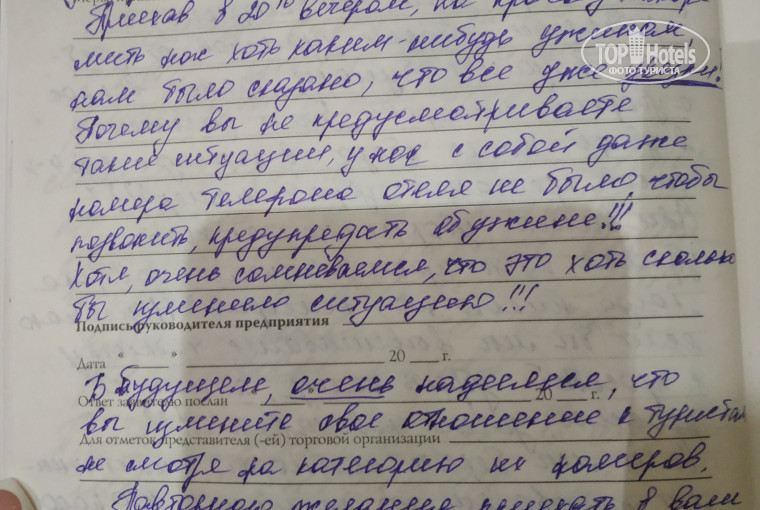 Приехав в 20 00 вечером, на просьбу
мить нас хоть каким-нибудь ужином
нам было сказано, что все уже
TOP Hotels
ФОТО ТУРИСТА
Почему вы не предусматриваете
такие ситуации, у нас с собой даже
номера телефона отеля не было, чтобы
позвонить, предупредить об ужине!!!
Хотя, очень сомневаемся, что это хоть сколько
бы изменило ситуацию!!!
Подпись руководителя предприятия
Дата « » 20 г.
В будущем, очень надеемся, что
Ответ заявителю послан 20 г.
вы измените свое отношение к туристам
Для отметок представителя (-ей) торговой организации
не смотря на категорию их номеров.
Повторного желания приехать в ваш